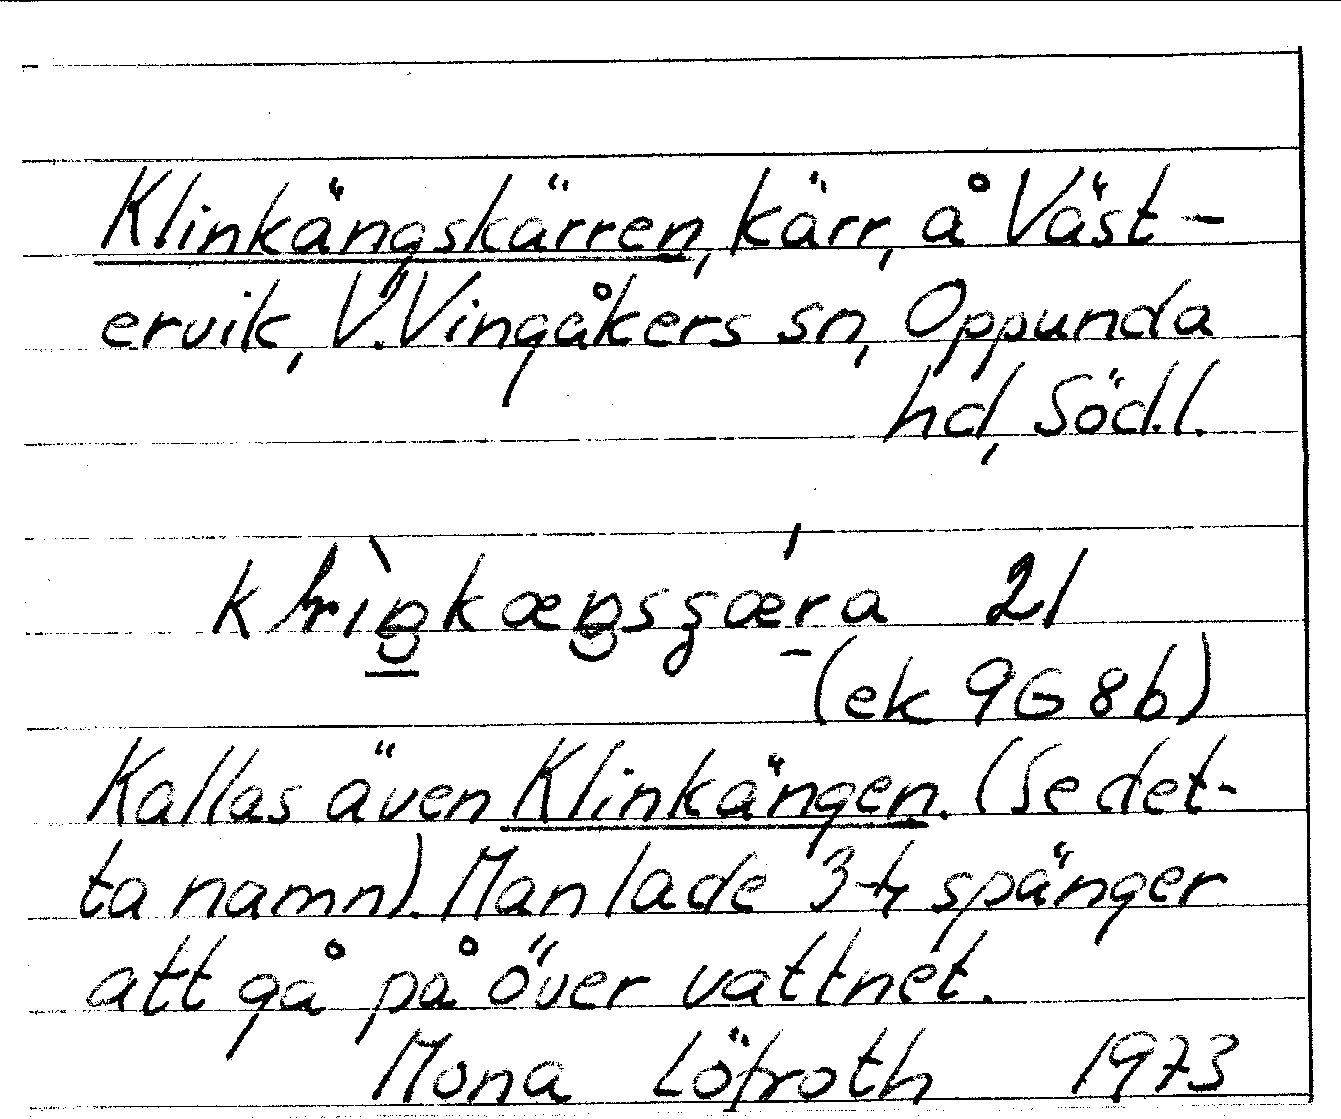 Klinkängskärren, kärr, å Väst-
ervik, V. Vingåkers sn, Oppunda
hd, Södl.
21
(ek 9G8b)
Kallas även Klinkängen. (Se det-
ta namn). Man lade 3-4 spänger
att gå på över vattnet.
Mona Löfroth 1973